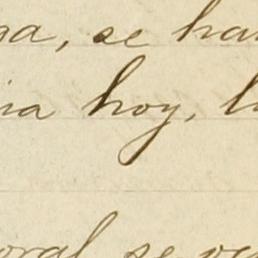 ga, se ha
ia hoy, l
oral se ve